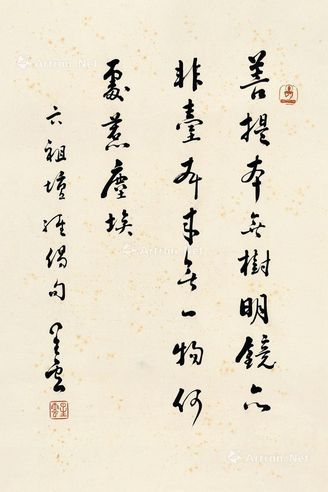 菩提本無樹明鏡亦
非臺本來無一物何
處惹塵埃
六祖壇經偈句 星雲
星雲
Artron.Net
Artron.Net
Artron.Net